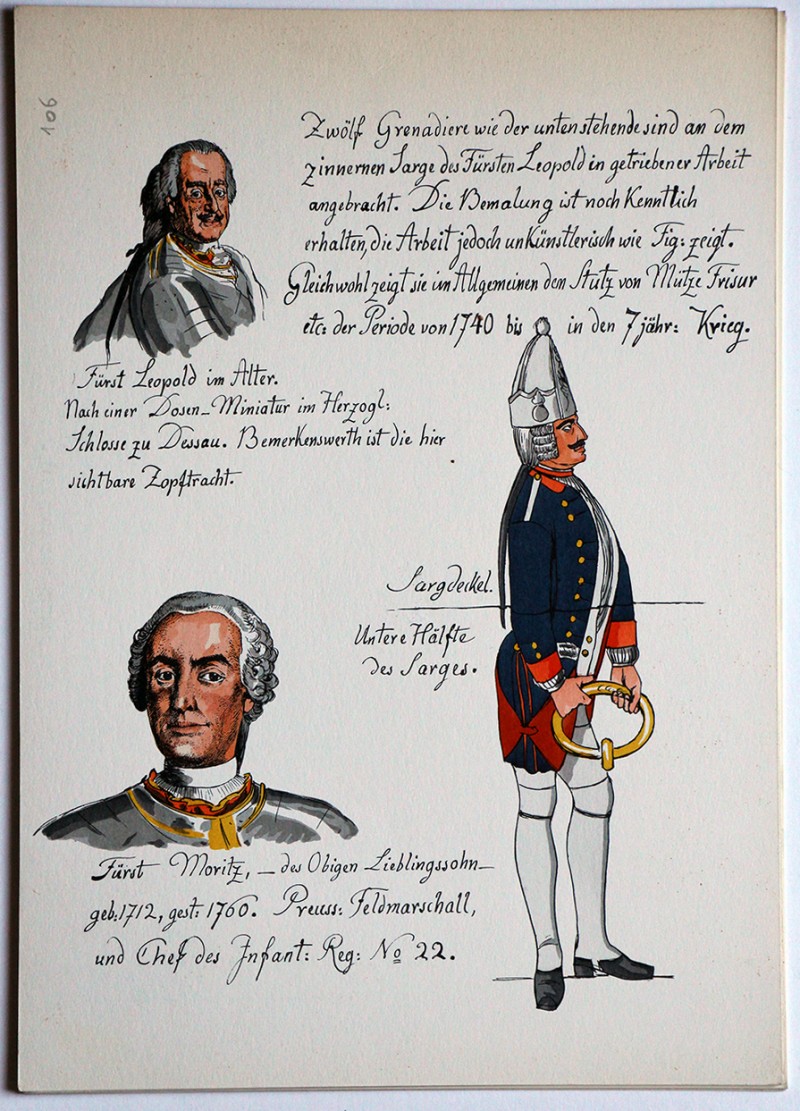 106
Zwölf Grenadiere wie der untenstehende sind an dem
zinnernen Sarge des Fürsten Leopold in getriebener Arbeit
angebracht. Die Bemalung ist noch Kenntlich
erhalten, die Arbeit jedoch unkünstlerisch wie Fig: zeigt.
Gleichwohl zeigt sie im Allgemeinen den Stutz von Mütze Frisur
etc: der Periode von 1740 bis in den 7 jähr: Krieg.
Fürst Leopold im Alter.
Nach einer Dosen-Miniatur im Herzogl:
Schlosse zu Dessau. Bemerkenswerth ist die hier
sichtbare Zopftracht.
Sargdeckel.
Untere Hälfte
des Sarges.
Fürst Moritz, – des Obigen Lieblingssohn –
geb: 1712, gest: 1760. Preuss: Feldmarschall,
und Chef des Infant: Reg: No 22.